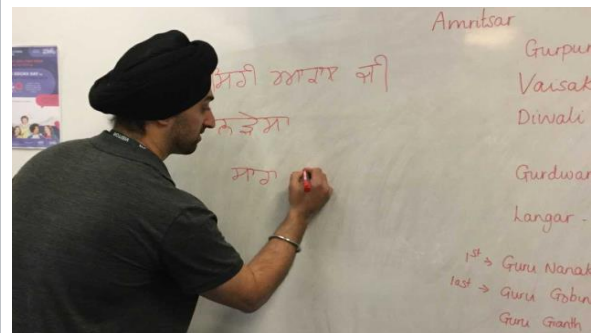 ਸਰੀ ਅਕਾਲ ਜੀ
ਸਾਗ
Amritsar
Gurpur
Vaisak
Diwali
Gurdwar
Langar -
1st → Guru Nanak
last → Guru Gobin
Guru Granth